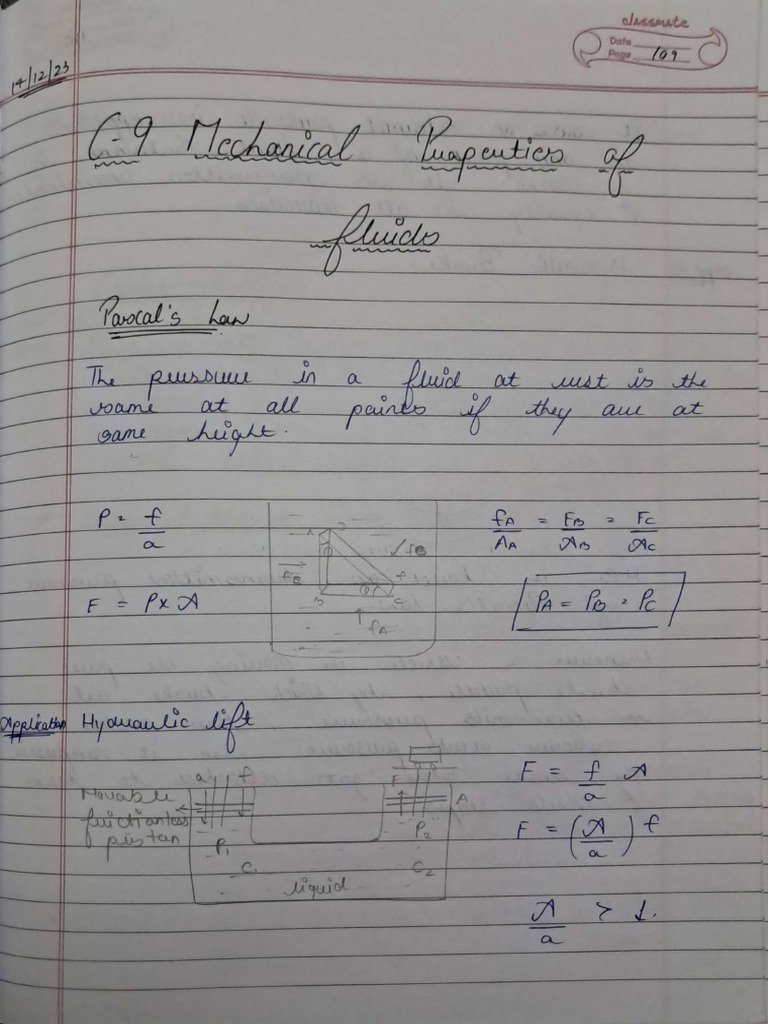 classmate
Date
Page 109
14/12/23
C-9 Mechanical Properties of
fluids
Pascal's Law
The pressure in a fluid at rest is the
same at all points if they are at
same height.
P = f/a
F = P x A
fA/AA = FB/AB = FC/AC
PA = PB = PC
Application Hydraulic lift
Movable
frictionless
piston
a f
F
A
P1
P2
C1
C2
liquid
F = f/a A
F = (A/a) f
A/a > 1.